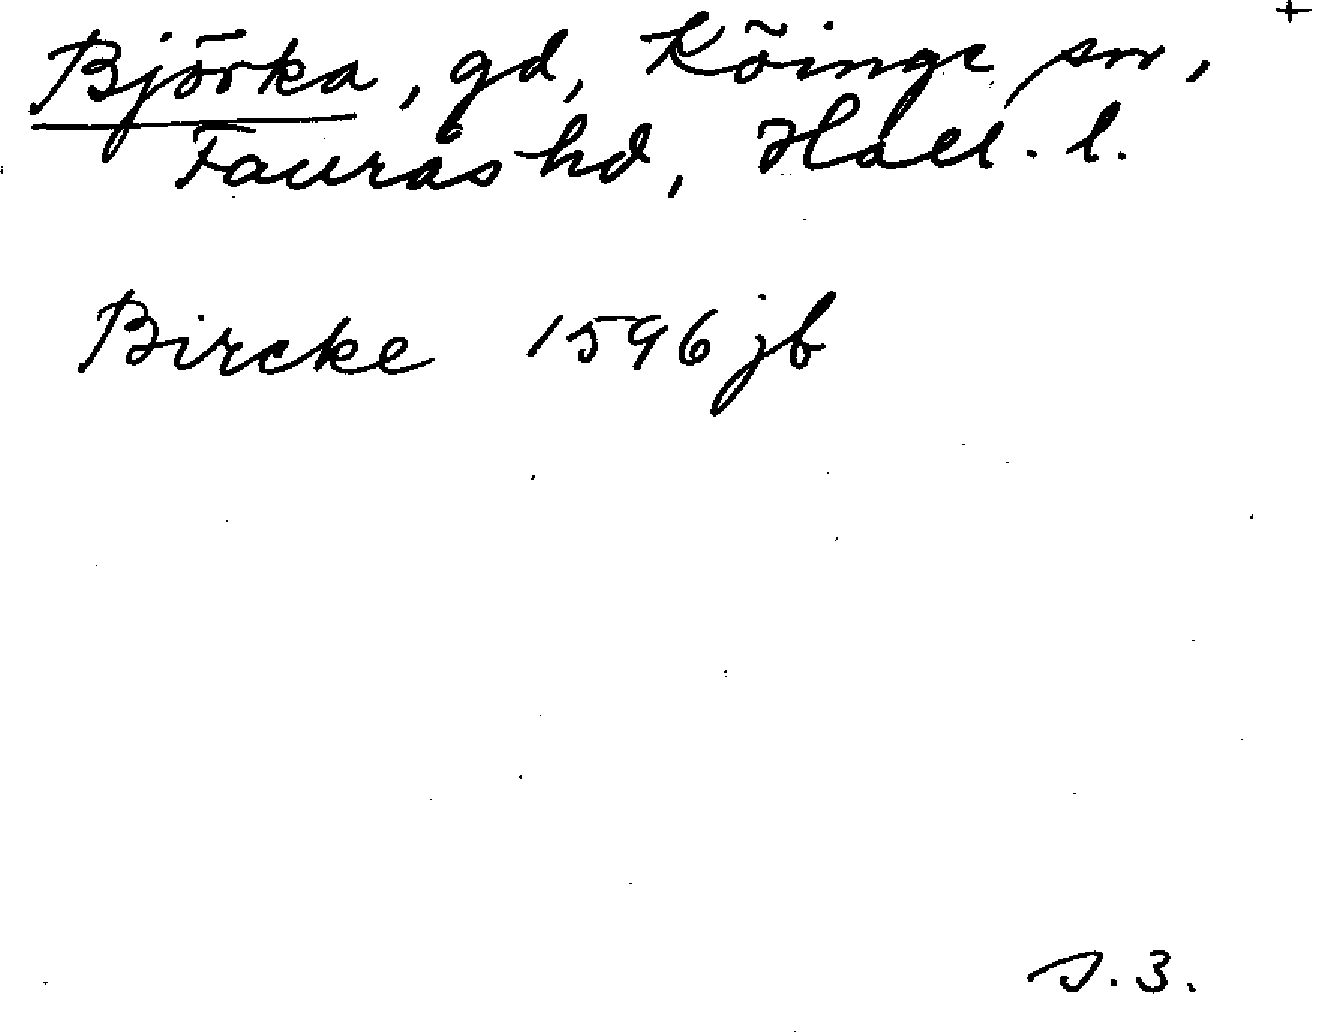 +
Björka, gd, Köinge sn,
Faurås hd, Hall. l.
Bircke 1596 jb
s. 3.